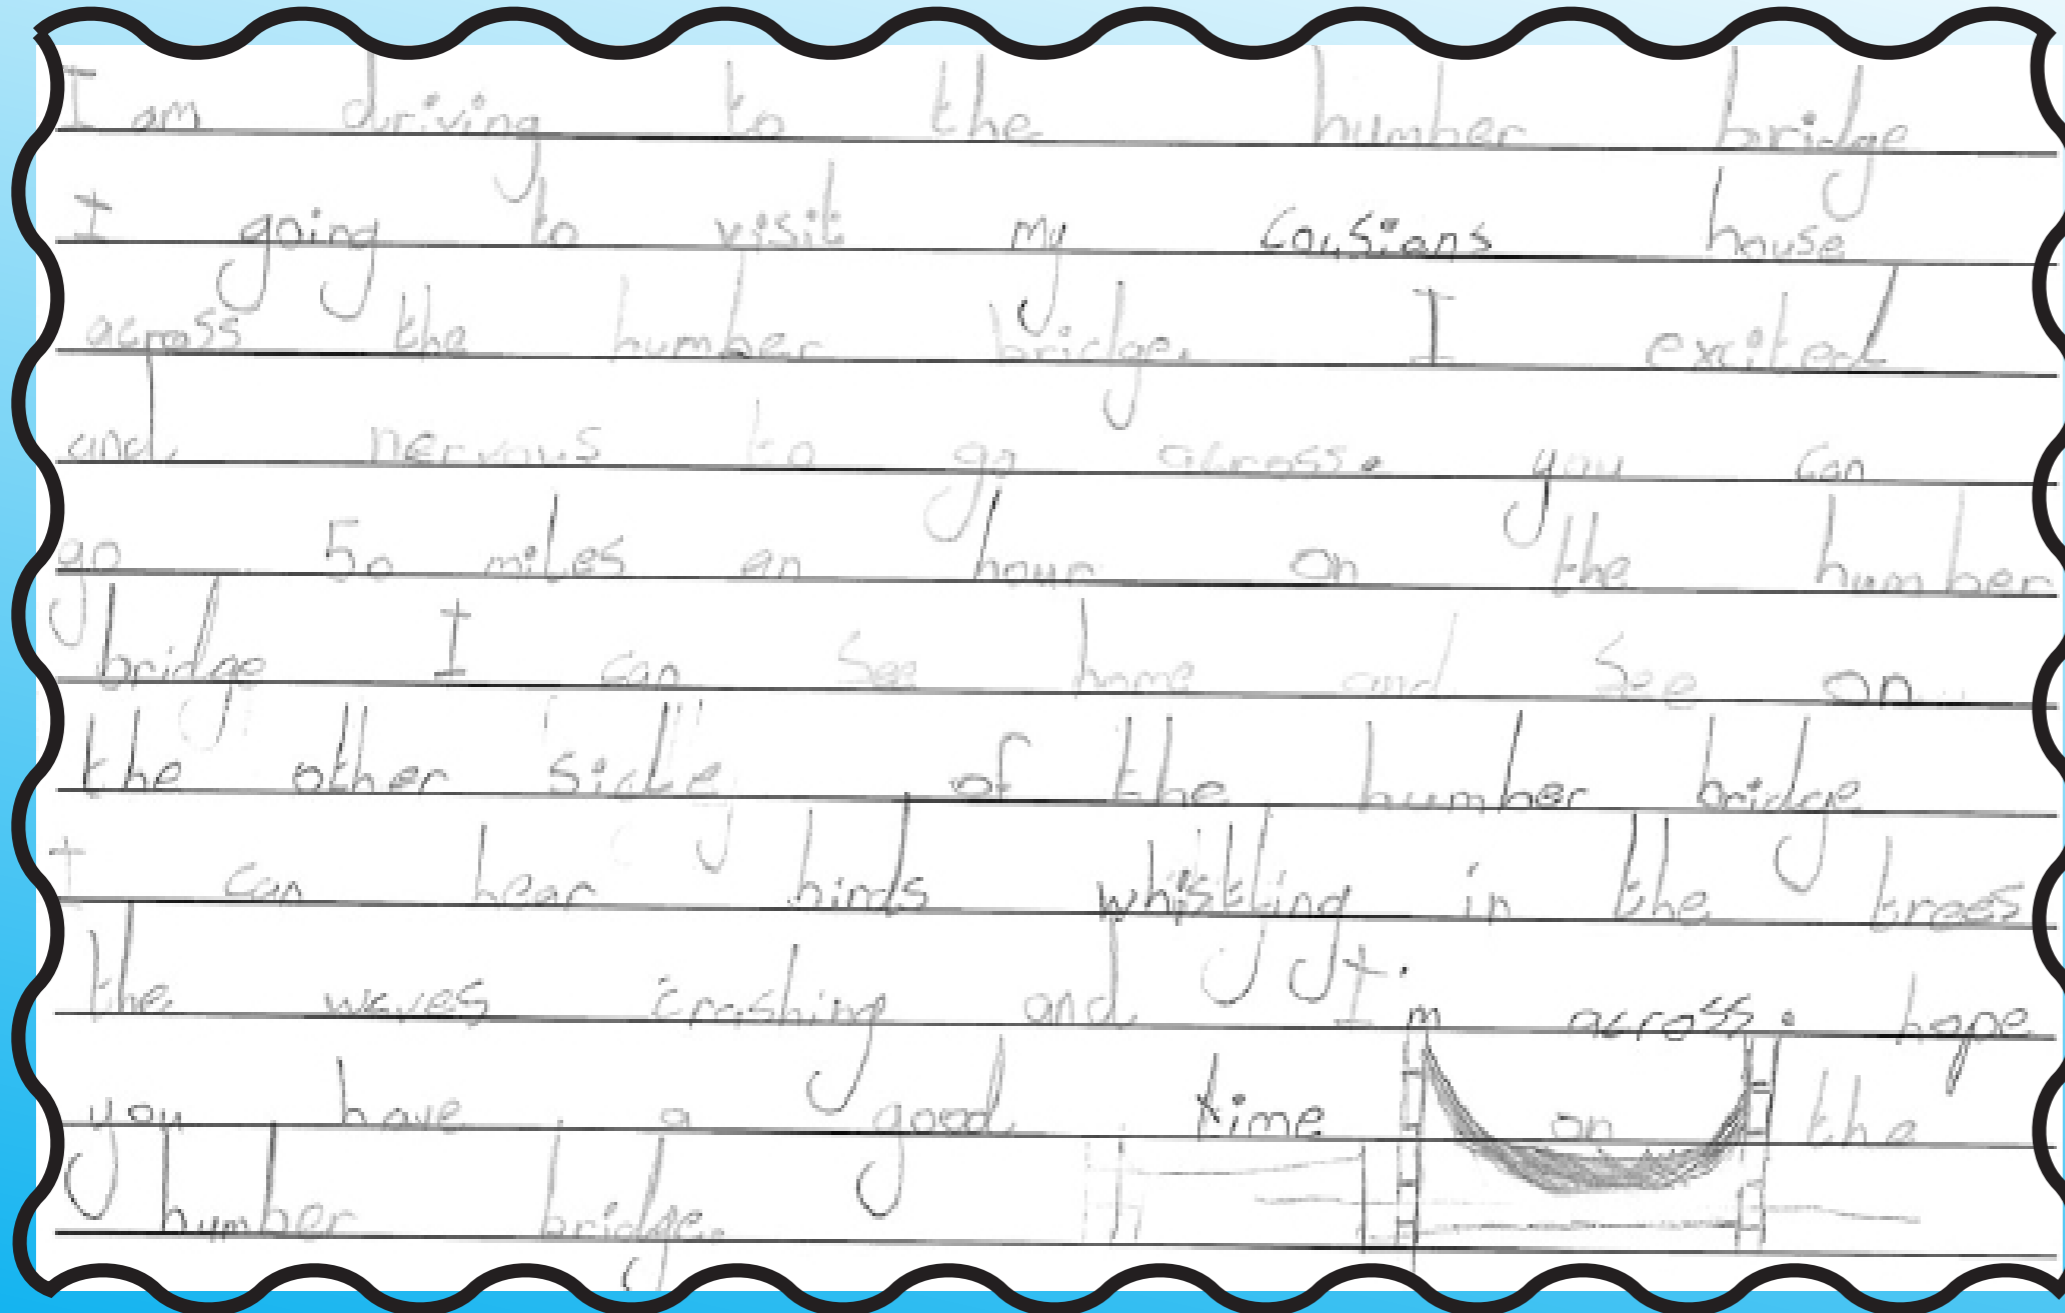 I am driving to the humber bridge
I going to visit my cousians house
across the humber bridge. I excited
and nervous to go across. you can
go 50 miles an hour on the humber
bridge I can see home and see on
the other side of the humber bridge
I can hear birds whistling in the trees
the waves crashing and I'm across. hope
you have a good time on the
humber bridge.